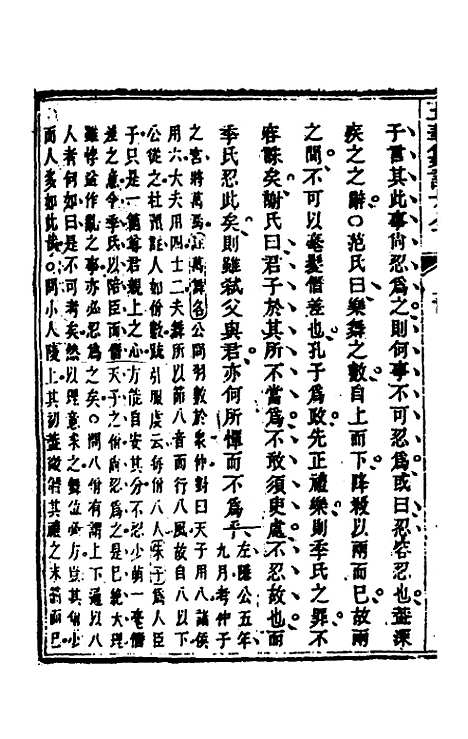 子言其此事尚忍爲之則何事不可忍爲或曰忍容忍也蓋深
疾之之辭○范氏曰樂舞之數自上而下降殺以兩而已故兩
之間不可以毫髮僭差也孔子爲政先正禮樂則季氏之罪不
容誅矣謝氏曰君子於其所不當爲不敢須臾處不忍故也而
季氏忍此矣則雖弒父與君亦何所憚而不爲乎左隱公五年
九月考仲子
之宮將萬焉公問羽數於衆仲對曰天子用八諸侯
用六大夫用四士二夫舞所以節八音而行八風故自八以下
公從之杜預註人如佾數疏引服虔云每佾八人朱子爲人臣
子只是一箇尊君親上之心方能自安其分不忍少萌一毫僭
差之意今季氏以陪臣而僭天子之佾尚忍爲之是已絶天理
雖悖逆作亂之事亦必忍爲之矣○問八佾有謂上下通以八
人者何如曰是不可考矣然以理意求之舞位必方豈其佾少
而人多如此哉○問小人陵上其初蓋微僭其禮之末節而已